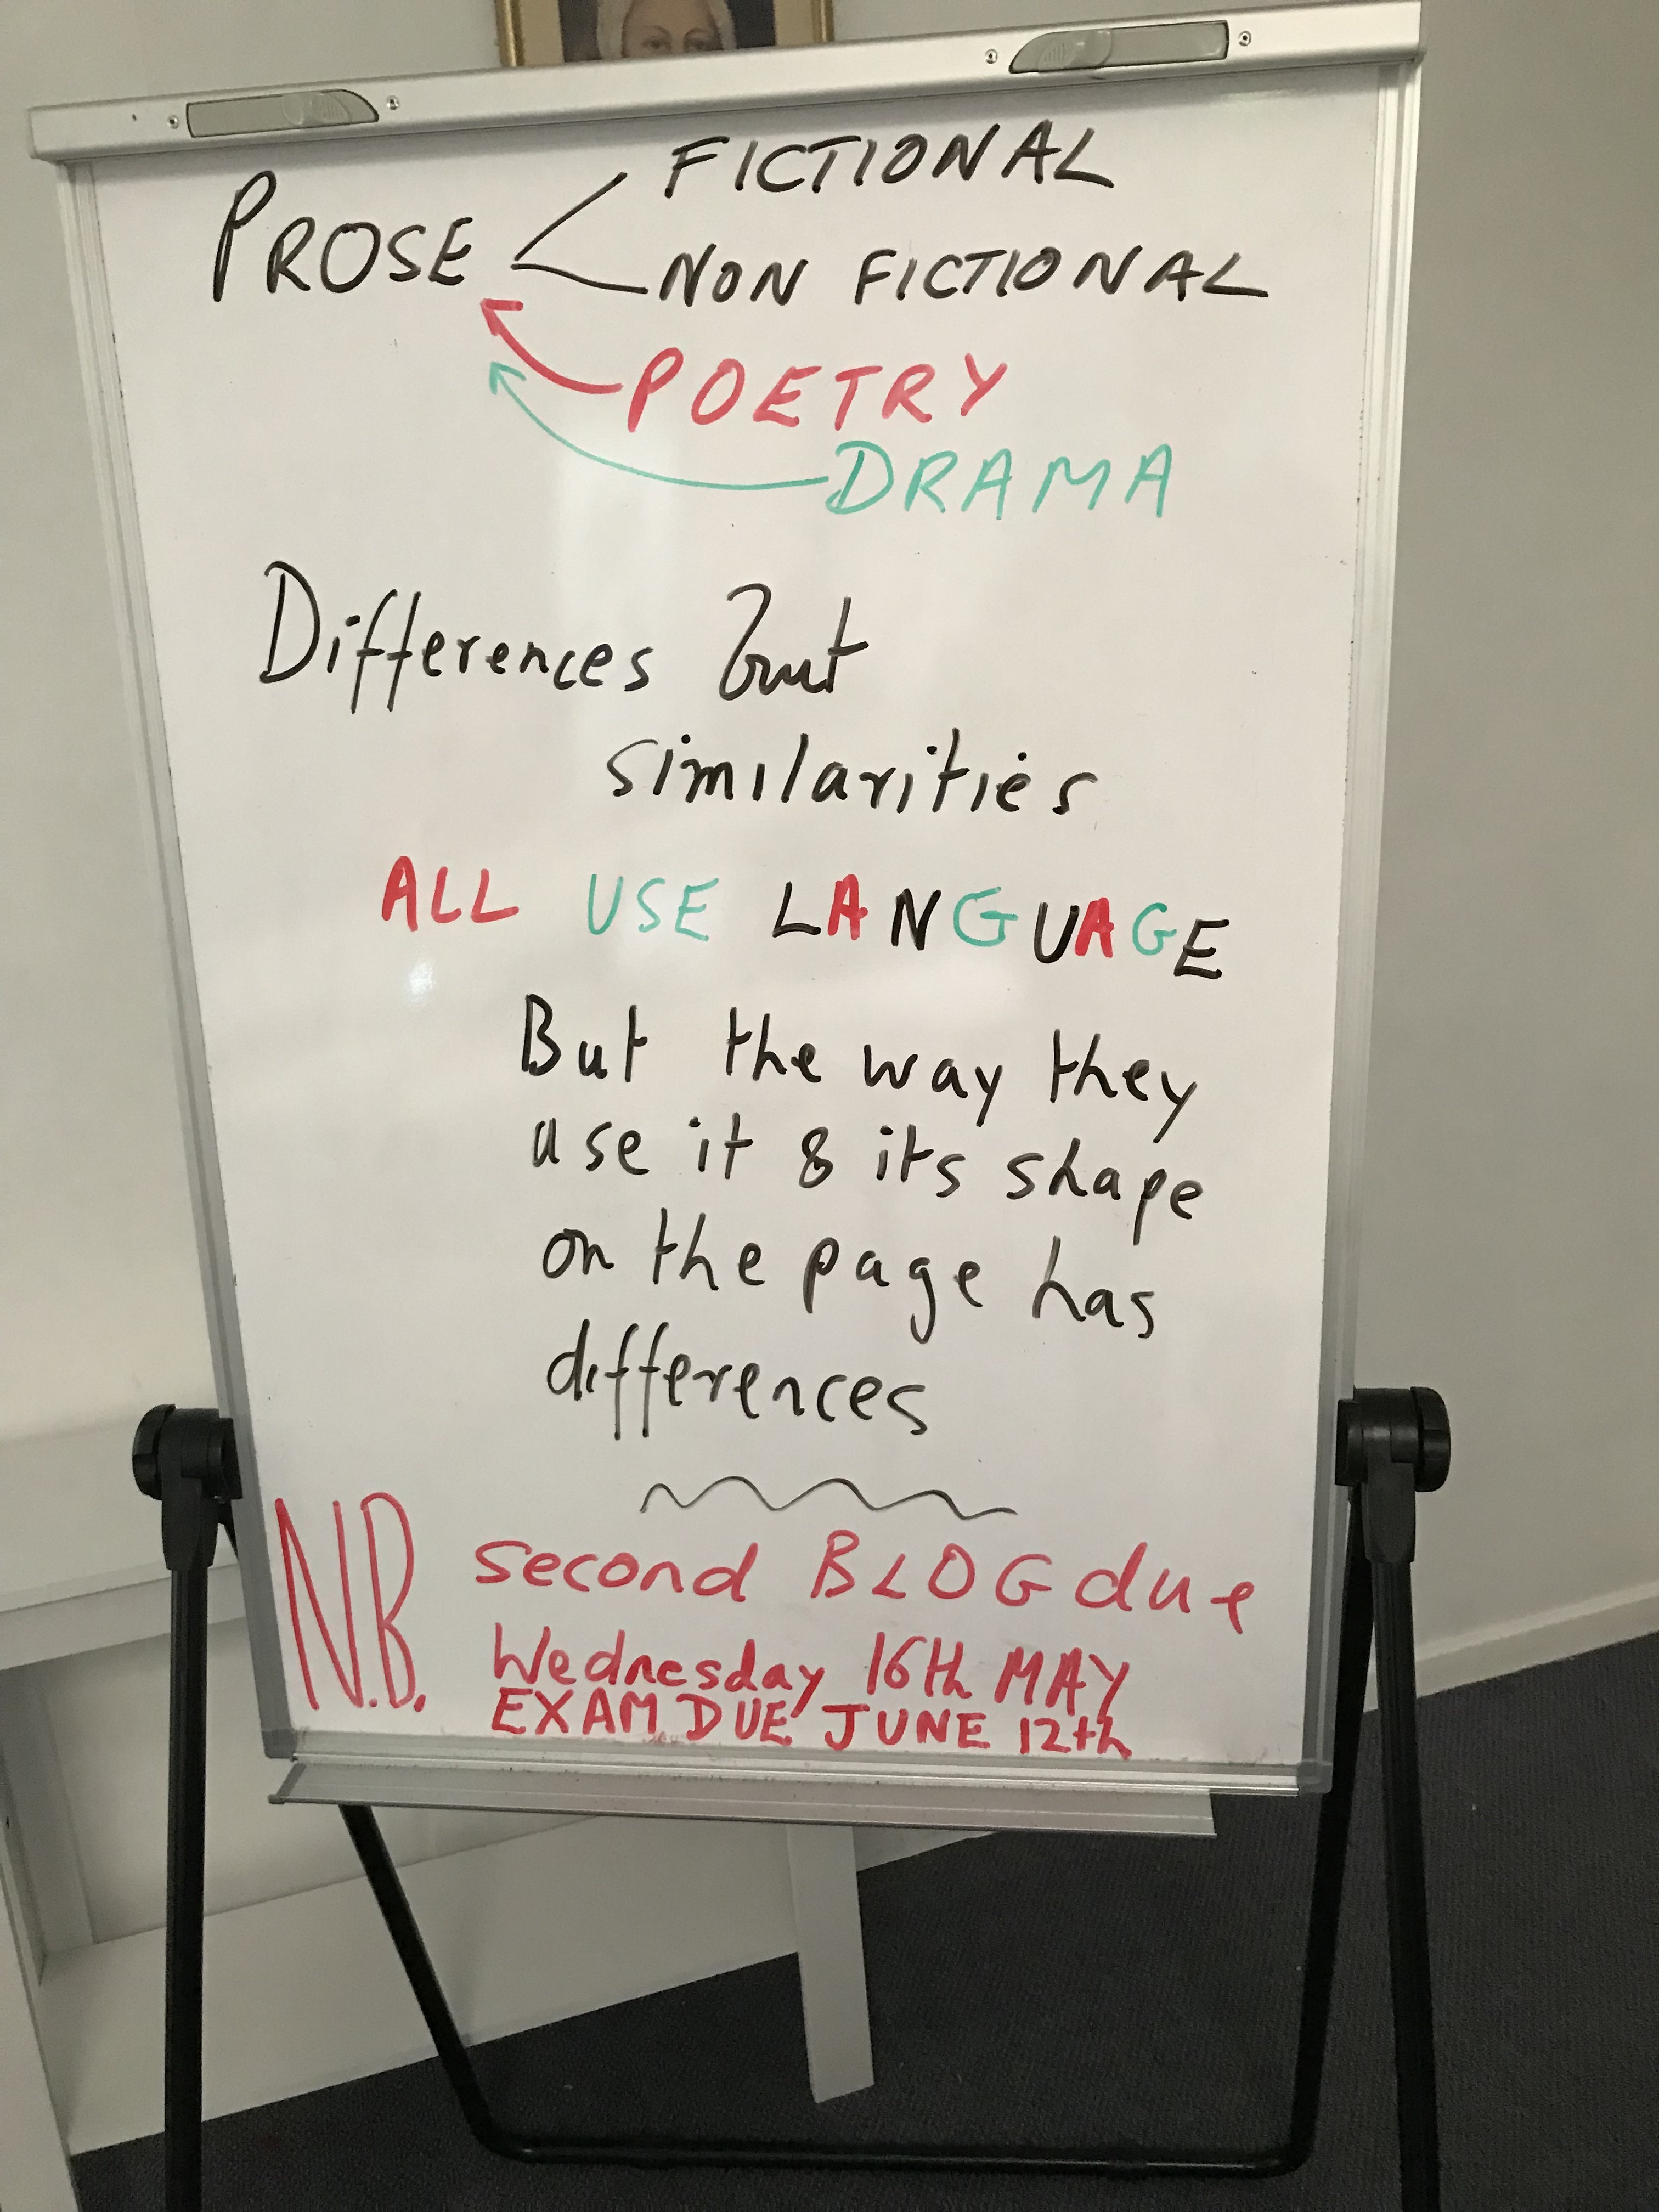 FICTIONAL
PROSE
NON FICTIONAL
POETRY
DRAMA
Differences but
similarities
ALL USE LANGUAGE
But the way they
use it & its shape
on the page has
differences
N.B. second BLOG due
Wednesday 16th MAY
EXAM DUE JUNE 12th